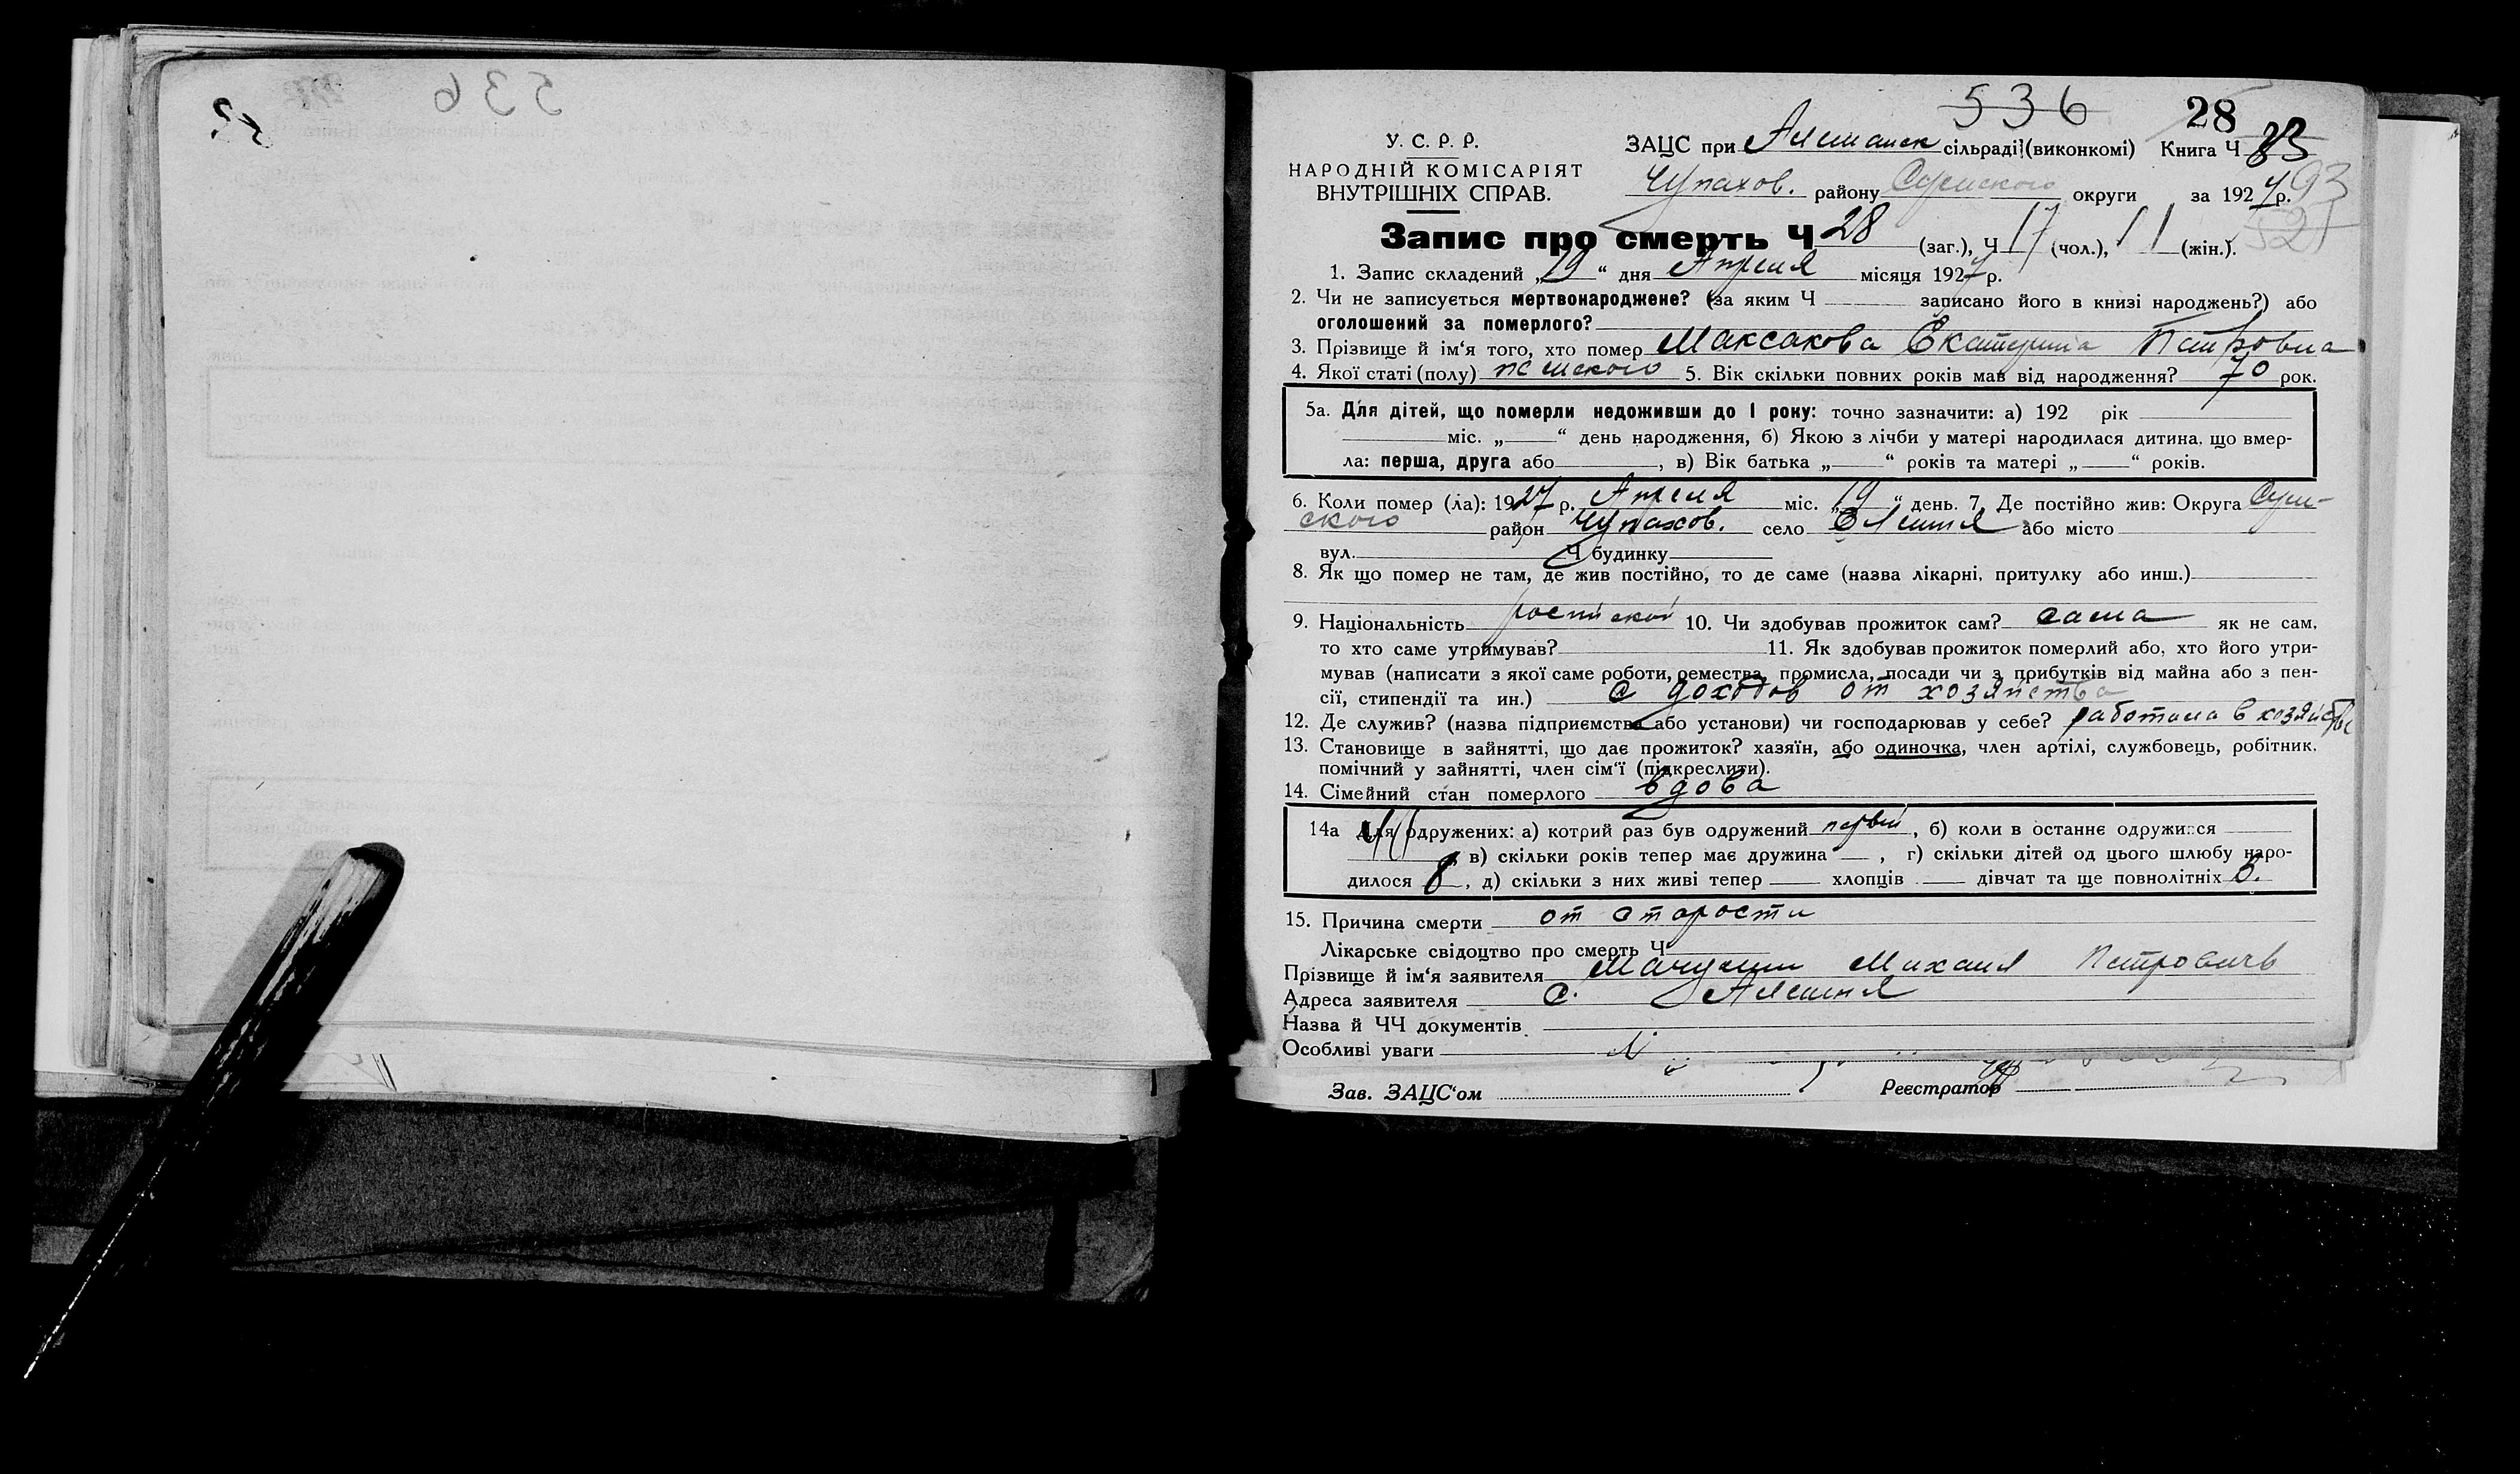 536
28
У. С. Р. Р.
НАРОДНІЙ КОМІСАРІЯТ
ВНУТРІШНІХ СПРАВ.
ЗАЦС при Алешанск сільраді (виконкомі) Книга Ч
Чупахов. району Сумского округи за 1927 р. 93
Запис про смерть Ч 28 (заг.), Ч 17 (чол.), 11 (жін.). 521
1. Запис складений „19“ дня Апреля місяця 1927 р.
2. Чи не записується мертвонароджене? (за яким Ч записано його в книзі народжень?) або
оголошений за померлого?
3. Прізвище й ім‘я того, хто помер Максакова Екатерина Петровна
4. Якої статі (полу) женского 5. Вік скільки повних років мав від народження? 70 рок.
5а. Для дітей, що померли недоживши до 1 року: точно зазначити: а) 192 рік
міс. „ “ день народження, б) Якою з лічби у матері народилася дитина, що вмер-
ла: перша, друга або , в) Вік батька „ “ років та матері „ “ років.
6. Коли помер (ла): 1927 р. Апреля міс. „19“ день. 7. Де постійно жив: Округа Сум-
ского район Чупахов. село Алешня або місто
вул. Ч будинку
8. Як що помер не там, де жив постійно, то де саме (назва лікарні, притулку або инш.)
9. Національність 10. Чи здобував прожиток сам? сама як не сам,
то хто саме утримував? 11. Як здобував прожиток померлий або, хто його утри-
мував (написати з якої саме роботи, ремества, промисла, посади чи з прибутків від майна або з пен-
сії, стипендії та ин.) с доходов от хозяйства
12. Де служив? (назва підприємства або установи) чи господарював у себе? работала в хозяйстве
13. Становище в зайнятті, що дає прожиток? хазяїн, або одиночка, член артілі, службовець, робітник,
помічний у зайнятті, член сім‘ї (підкреслити).
14. Сімейний стан померлого вдова
14а Для одружених: а) котрий раз був одружений первый, б) коли в останнє одружився
в) скільки років тепер має дружина — , г) скільки дітей од цього шлюбу наро-
дилося 8, д) скільки з них живі тепер хлопців дівчат та ще повнолітніх
15. Причина смерти от старости
Лікарське свідоцтво про смерть Ч
Прізвище й ім‘я заявителя Михаил Петрович
Адреса заявителя с. Алешня
Назва й ЧЧ документів
Особливі уваги
Зав. ЗАЦС‘ом Реєстратор